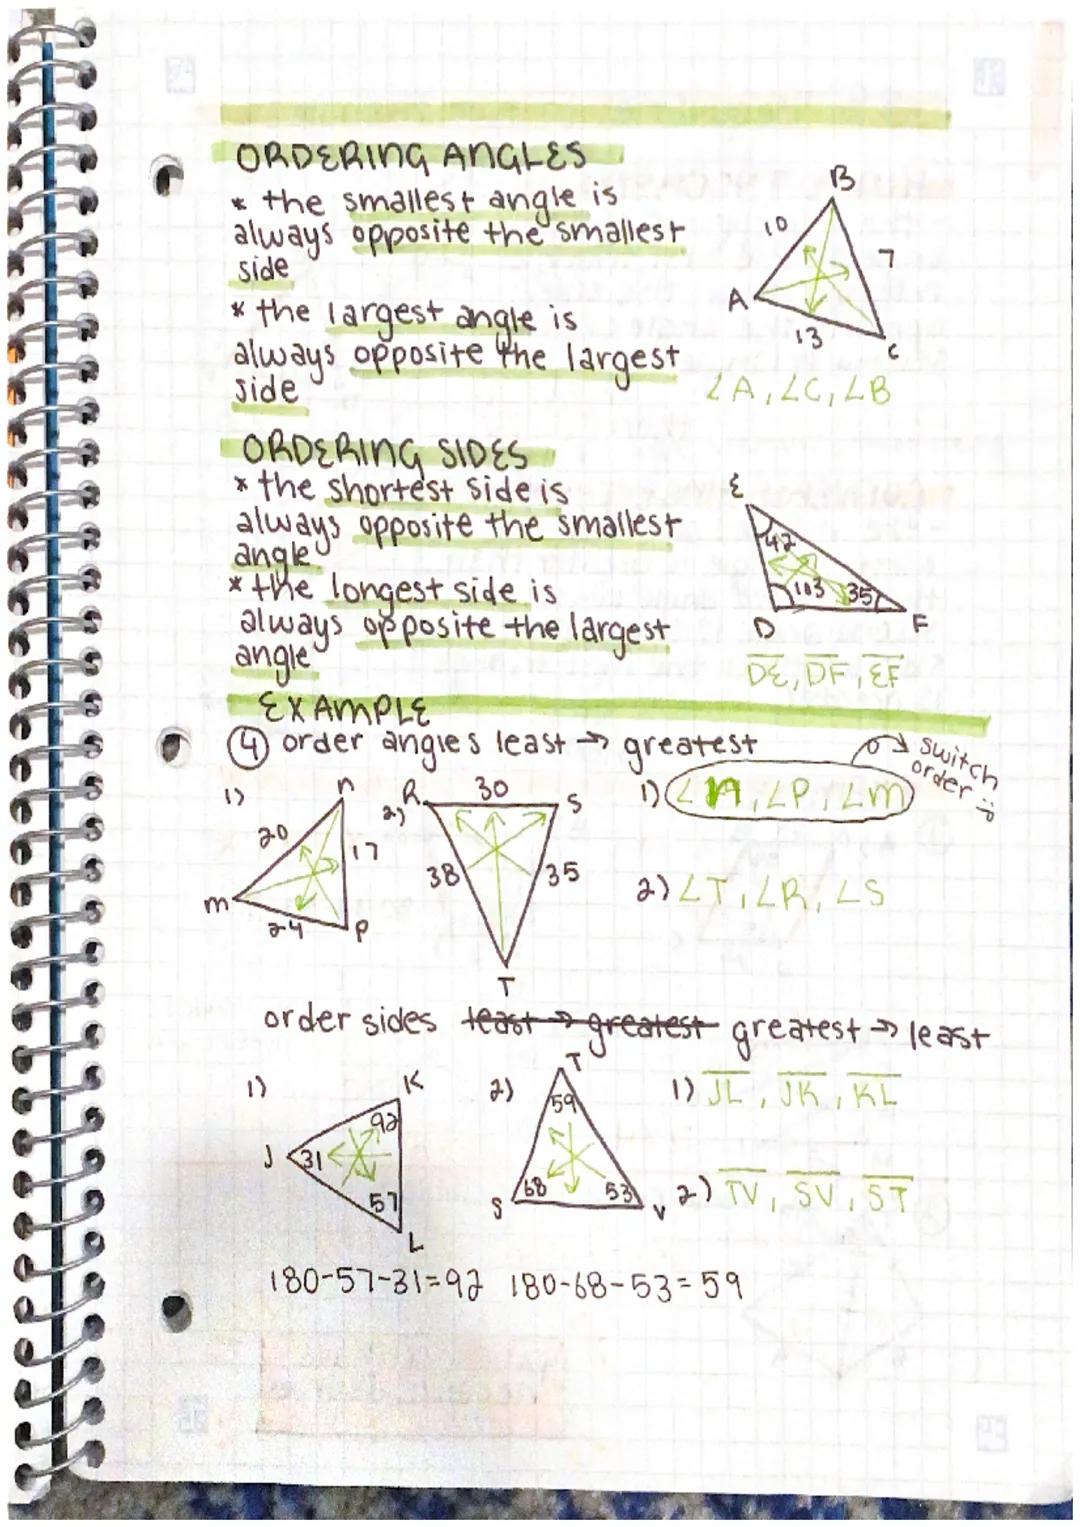 ORDERING ANGLES
* the smallest angle is
always opposite the smallest
side
* the largest angle is
always opposite the largest
side
B
10
7
A
13
C
∠A, ∠C, ∠B
ORDERING SIDES
* the shortest side is
always opposite the smallest
angle
* the longest side is
always opposite the largest
angle
E
42
103
35
D
F
DE, DF, EF
EXAMPLE
④ order angles least → greatest
switch
order
1)
N
20
17
M
24
P
2)
R
30
S
38
35
T
1) ∠N, ∠P, ∠M
2) ∠T, ∠R, ∠S
order sides least → greatest greatest → least
1)
K
92
J
31
57
L
2)
T
59
68
53
S
V
1) JL, JK, KL
2) TV, SV, ST
180-57-31=92 180-68-53=59